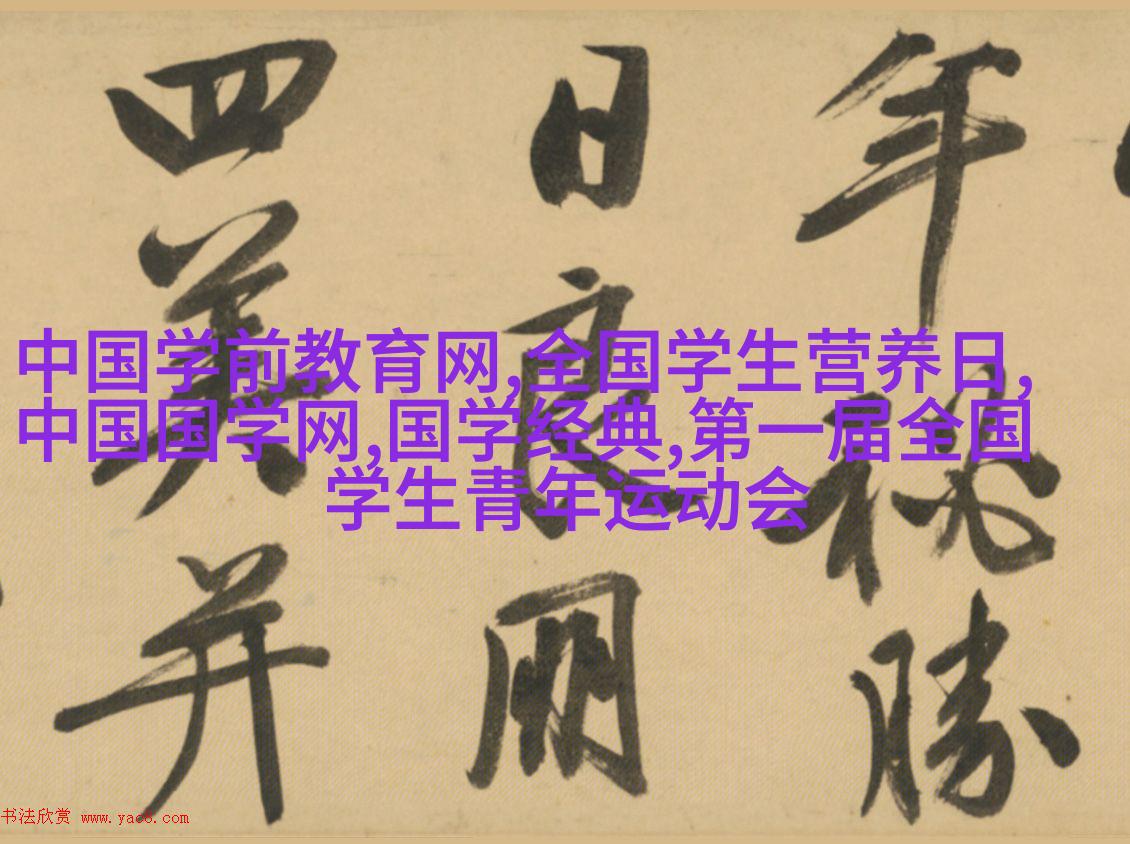 年秘勝
日良朋
四美并
中国学前教育网,全国学生营养日,
中国国学网,国学经典,第一届全国
学生青年运动会
书法欣赏 www.yac8.com